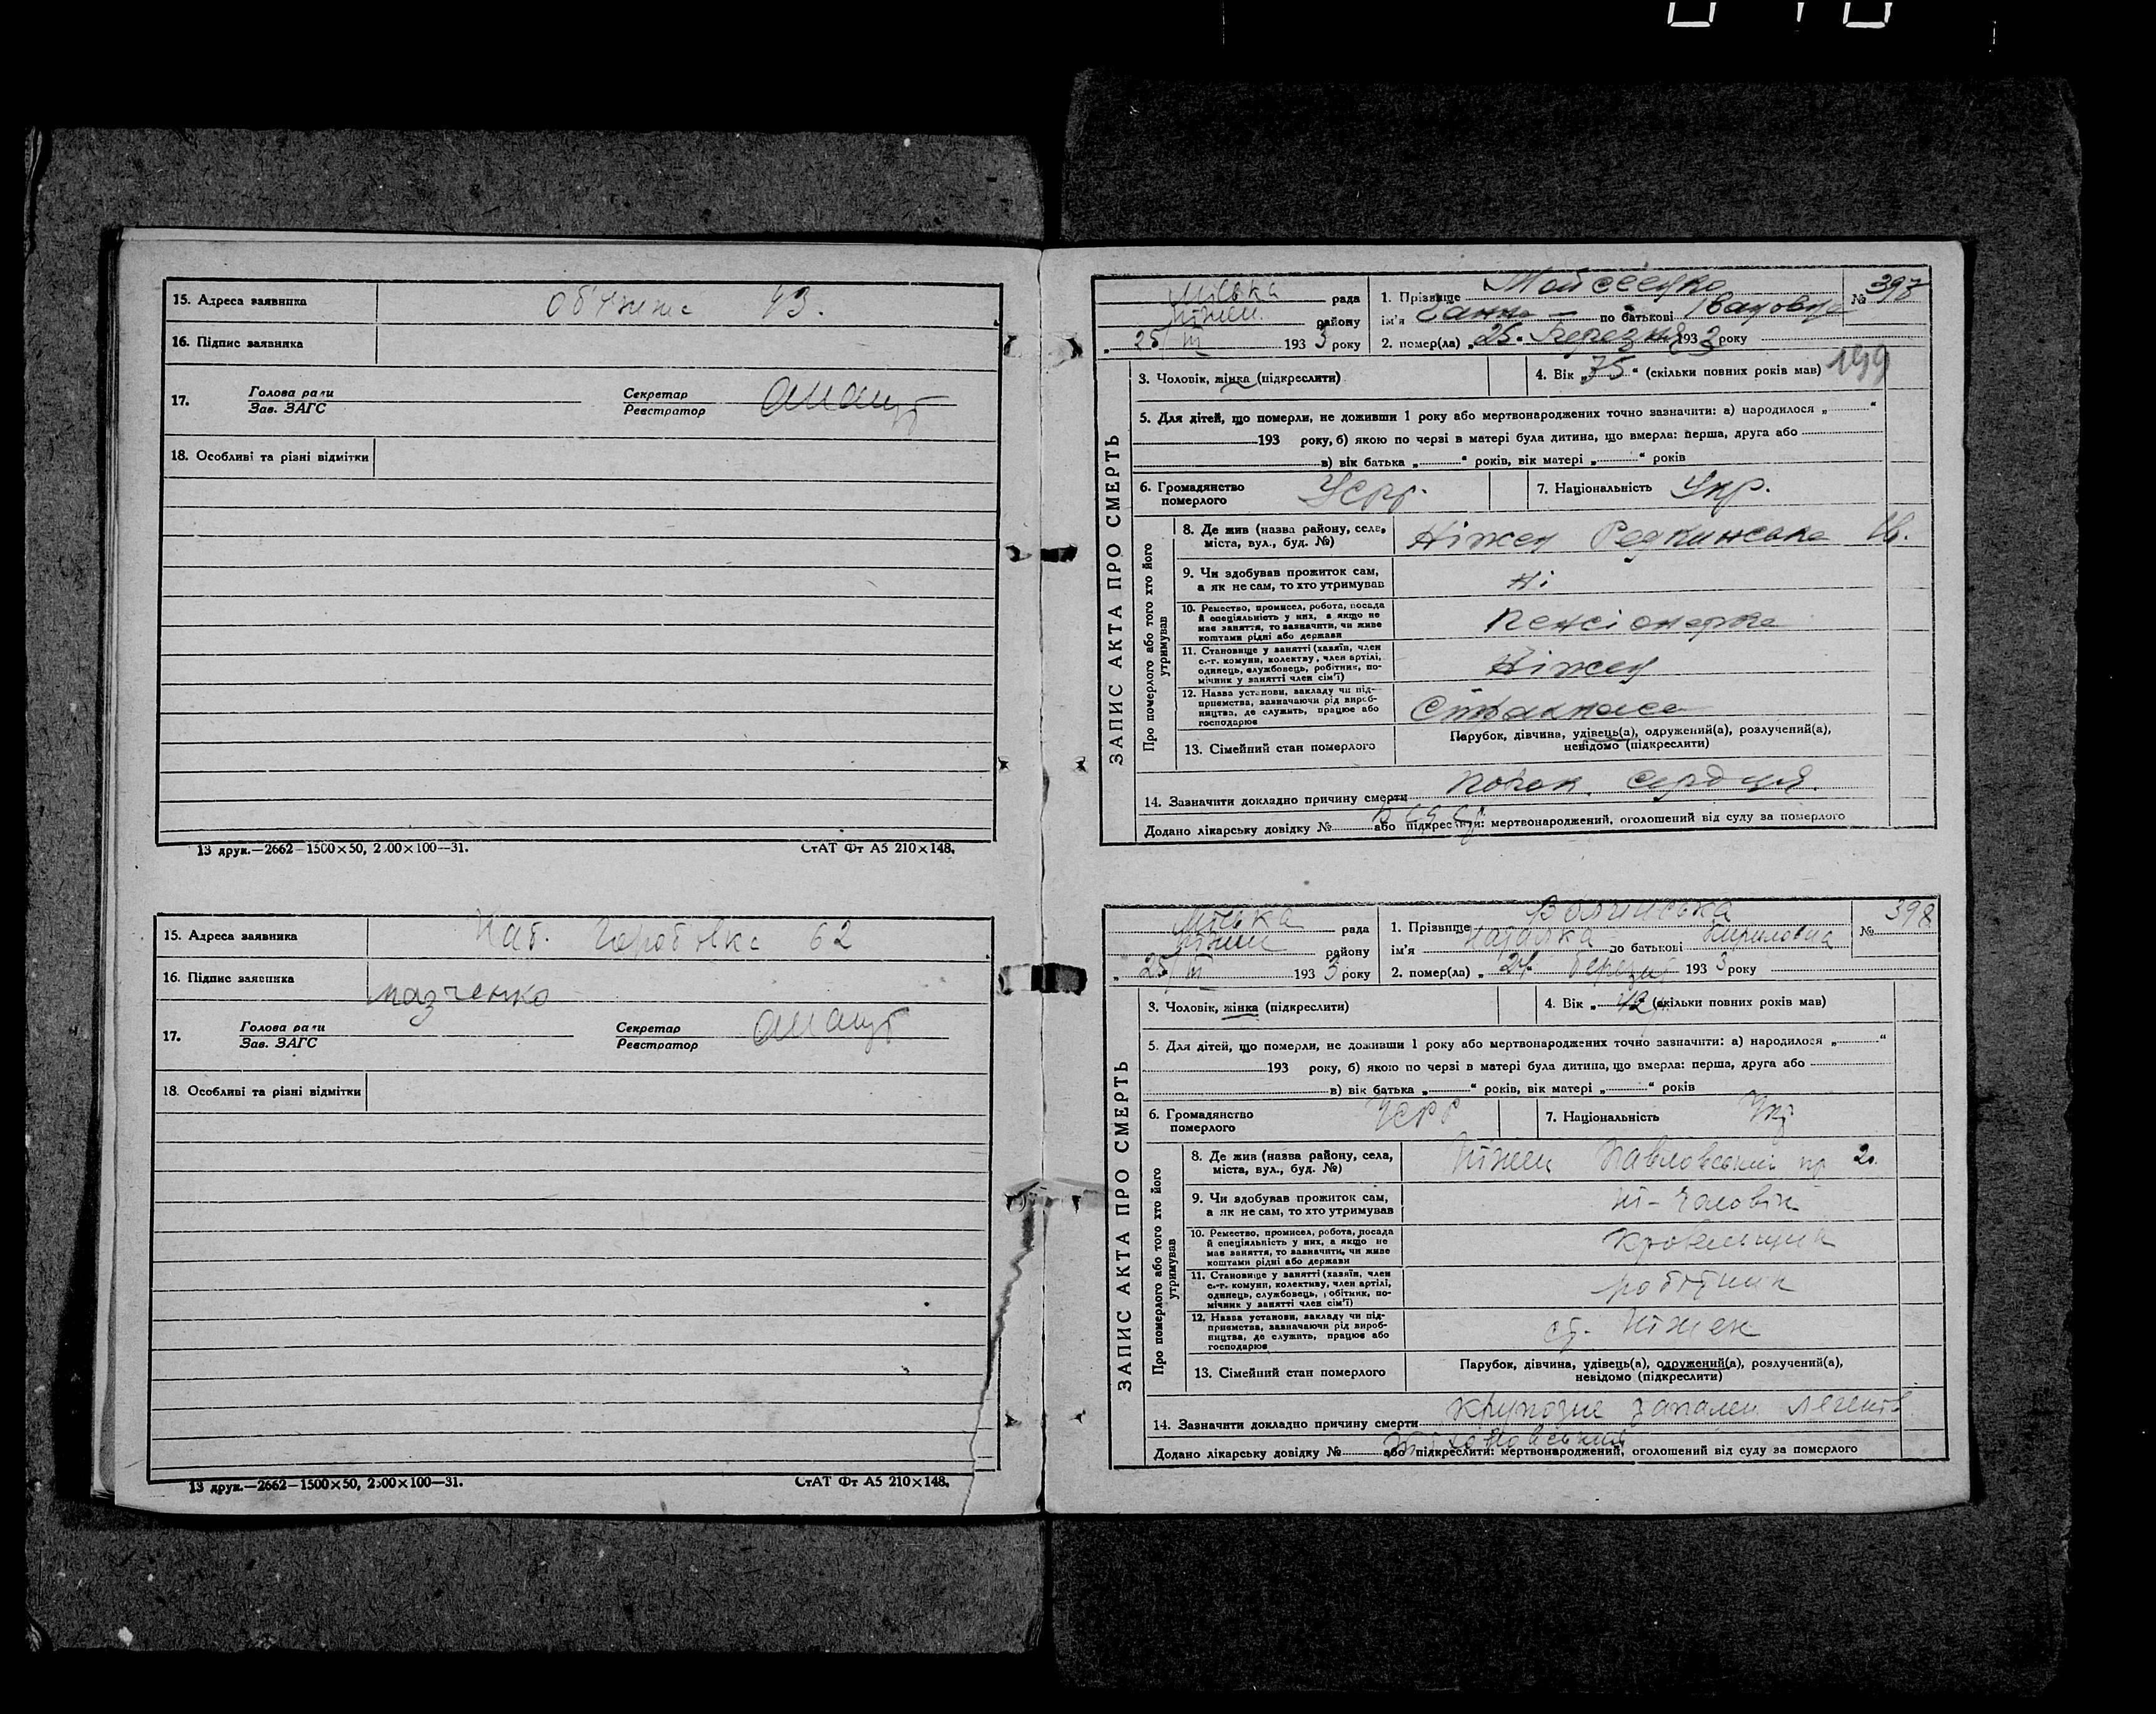 15. Адреса заявника
43.
16. Підпис заявника
17. Голова ради
Зав. ЗАГС
Секретар
Реєстратор
18. Особливі та різні відмітки
13 друк.—2662—1500×50, 2500×100—31. СтАТ Фт А5 210×148.
15. Адреса заявника
62
16. Підпис заявника
17. Голова ради
Зав. ЗАГС
Секретар
Реєстратор
18. Особливі та різні відмітки
13 друк.—2662—1500×50, 2500×100—31. СтАТ Фт А5 210×148.
ЗАПИС АКТА ПРО СМЕРТЬ
Міська рада
Ніжен. району
„ 25 III 1933 року
1. Прізвище Мойсеенко
№ 397
ім'я Ганна по батькові Івановна
2. помер(ла) „25. Березня 1933 року
3. Чоловік, жінка (підкреслити)
4. Вік „75“ (скільки повних років мав)
199
5. Для дітей, що померли, не доживши 1 року або мертвонароджених точно зазначити: а) народилося „ “
193 року, б) якою по черзі в матері була дитина, що вмерла: перша, друга або
в) вік батька „ “ років, вік матері „ “ років
6. Громадянство померлого УСРР.
7. Національність Укр.
Про померлого або того хто його утримував
8. Де жив (назва району, села, міста, вул., буд. №) Ніжен Редкинська
9. Чи здобував прожиток сам, а як не сам, то хто утримував ні
10. Ремество, промисел, робота, посада й спеціяльність у них, а якщо не має заняття, то зазначити, чи живе коштами рідні або держави пенсіонерка
11. Становище у занятті (хазяїн, член с.-г. комуни, колективу, член артілі, одинець, службовець, робітник, помічник у занятті член сім'ї) Ніжен
12. Назва установи, закладу чи підприємства, зазначаючи рід виробництва, де служить, працює або господарює Страхкаса
13. Сімейний стан померлого Парубок, дівчина, удівець(а), одружений(а), розлучений(а), невідомо (підкреслити)
14. Зазначити докладно причину смерти порок. сердця.
Додано лікарську довідку № або підкреслити: мертвонароджений, оголошений від суду за померлого
ЗАПИС АКТА ПРО СМЕРТЬ
Міська рада
Ніжен району
„ 25 III 1933 року
1. Прізвище
№ 398
ім'я Наталка по батькові Кириловна
2. помер(ла) „ 24 березня 1933 року
3. Чоловік, жінка (підкреслити)
4. Вік „42“ (скільки повних років мав)
5. Для дітей, що померли, не доживши 1 року або мертвонароджених точно зазначити: а) народилося „ “
193 року, б) якою по черзі в матері була дитина, що вмерла: перша, друга або
в) вік батька „ “ років, вік матері „ “ років
6. Громадянство померлого УСРР
7. Національність Укр
Про померлого або того хто його утримував
8. Де жив (назва району, села, міста, вул., буд. №) Ніжен Павловський пр 2.
9. Чи здобував прожиток сам, а як не сам, то хто утримував ні - чоловік
10. Ремество, промисел, робота, посада й спеціяльність у них, а якщо не має заняття, то зазначити, чи живе коштами рідні або держави Кровельщик
11. Становище у занятті (хазяїн, член с.-г. комуни, колективу, член артілі, одинець, службовець, робітник, помічник у занятті член сім'ї) робітник
12. Назва установи, закладу чи підприємства, зазначаючи рід виробництва, де служить, працює або господарює ст. Ніжен
13. Сімейний стан померлого Парубок, дівчина, удівець(а), одружений(а), розлучений(а), невідомо (підкреслити)
14. Зазначити докладно причину смерти крупозне запален легенів
Додано лікарську довідку № або підкреслити: мертвонароджений, оголошений від суду за померлого